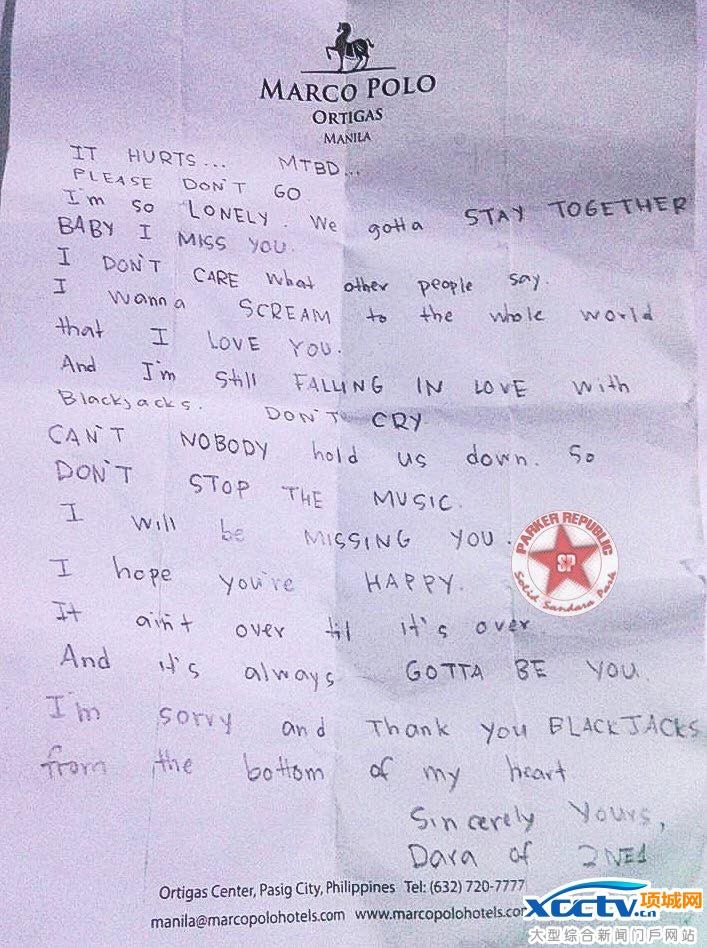 MARCO POLO
ORTIGAS
MANILA
IT HURTS... MTBD...
PLEASE DON'T GO
I'm so LONELY. We gotta STAY TOGETHER
BABY I MISS YOU.
I DON'T CARE what other people say.
I wanna SCREAM to the whole world
that I LOVE YOU.
And I'm still FALLING IN LOVE with
Blackjacks. DON'T CRY
CAN'T NOBODY hold us down. So
DON'T STOP THE MUSIC.
I will be MISSING YOU.
I hope you're HAPPY.
It ain't over til it's over.
And it's always GOTTA BE YOU.
I'm sorry and Thank you BLACKJACKS
from the bottom of my heart
Sincerely Yours,
Dara of 2NE1
PARKER REPUBLIC
SP
Solid Sandara Park
Ortigas Center, Pasig City, Philippines Tel: (632) 720-7777
manila@marcopolohotels.com www.marcopolohotels.co
xcctv.cn 项城网
大型综合新闻门戶网站